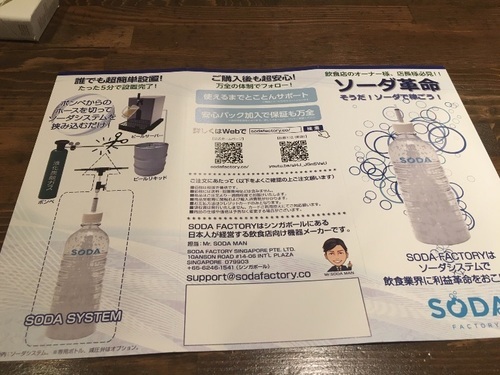 誰でも超簡単設置!
たった5分で設置完了!
ボンベからの
ホースを使って
ソーダシステムを
挟み込むだけ!
ビールサーバー
ビールリキッド
ボンベ
SODA
SODA SYSTEM
ご購入後も超安心!
万全の体制でフォロー!
使えるまでとことんサポート
安心パック加入で保証も万全
詳しくはWebで
sodafactory.co/
検索
ご注文にあたって (以下をよくご確認の上ご注文願います)
SODA FACTORYはシンガポールにある
日本人が経営する飲食店向け機器メーカーです。
担当: Mr. SODA MAN
SODA FACTORY SINGAPORE PTE. LTD.
10ANSON ROAD #14-06 INT'L PLAZA
SINGAPORE 079903
+65-6246-1541 (シンガポール)
support@sodafactory.co
Mr SODA MAN
飲食店のオーナー様、店長様必見!!
ソーダ革命
そうだ!ソーダで稼ごう!
SODA
SODA FACTORYは
ソーダシステムで
飲食業界に利益革命をおこ
SODA
FACTORY